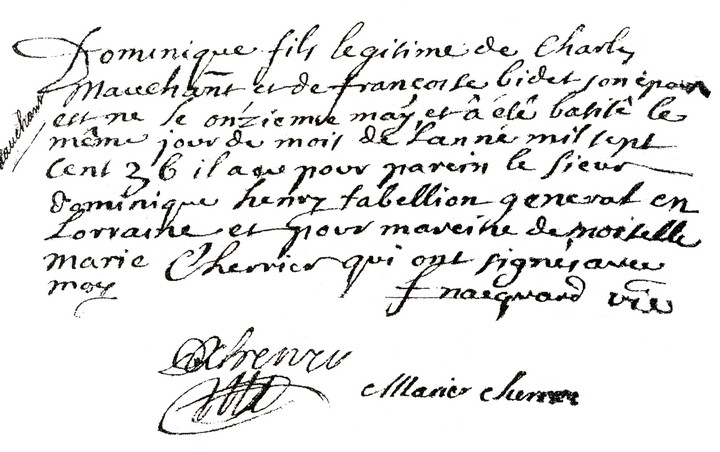 Dominique fils legitime de Charles
Mauchant et de francoise bidet son epouse
est ne le onzieme may et â êtê batisê le
même jour du mois de Lanné mil sept
Cent 36 il a eu pour parein le sieur
dominique henry tabellion general en
Lorraine et pour mareine demoiselle
marie Cherrier qui ont signés avec
moy
f nacquard vic
Mauchant
Dhenry
Marie Cherrier